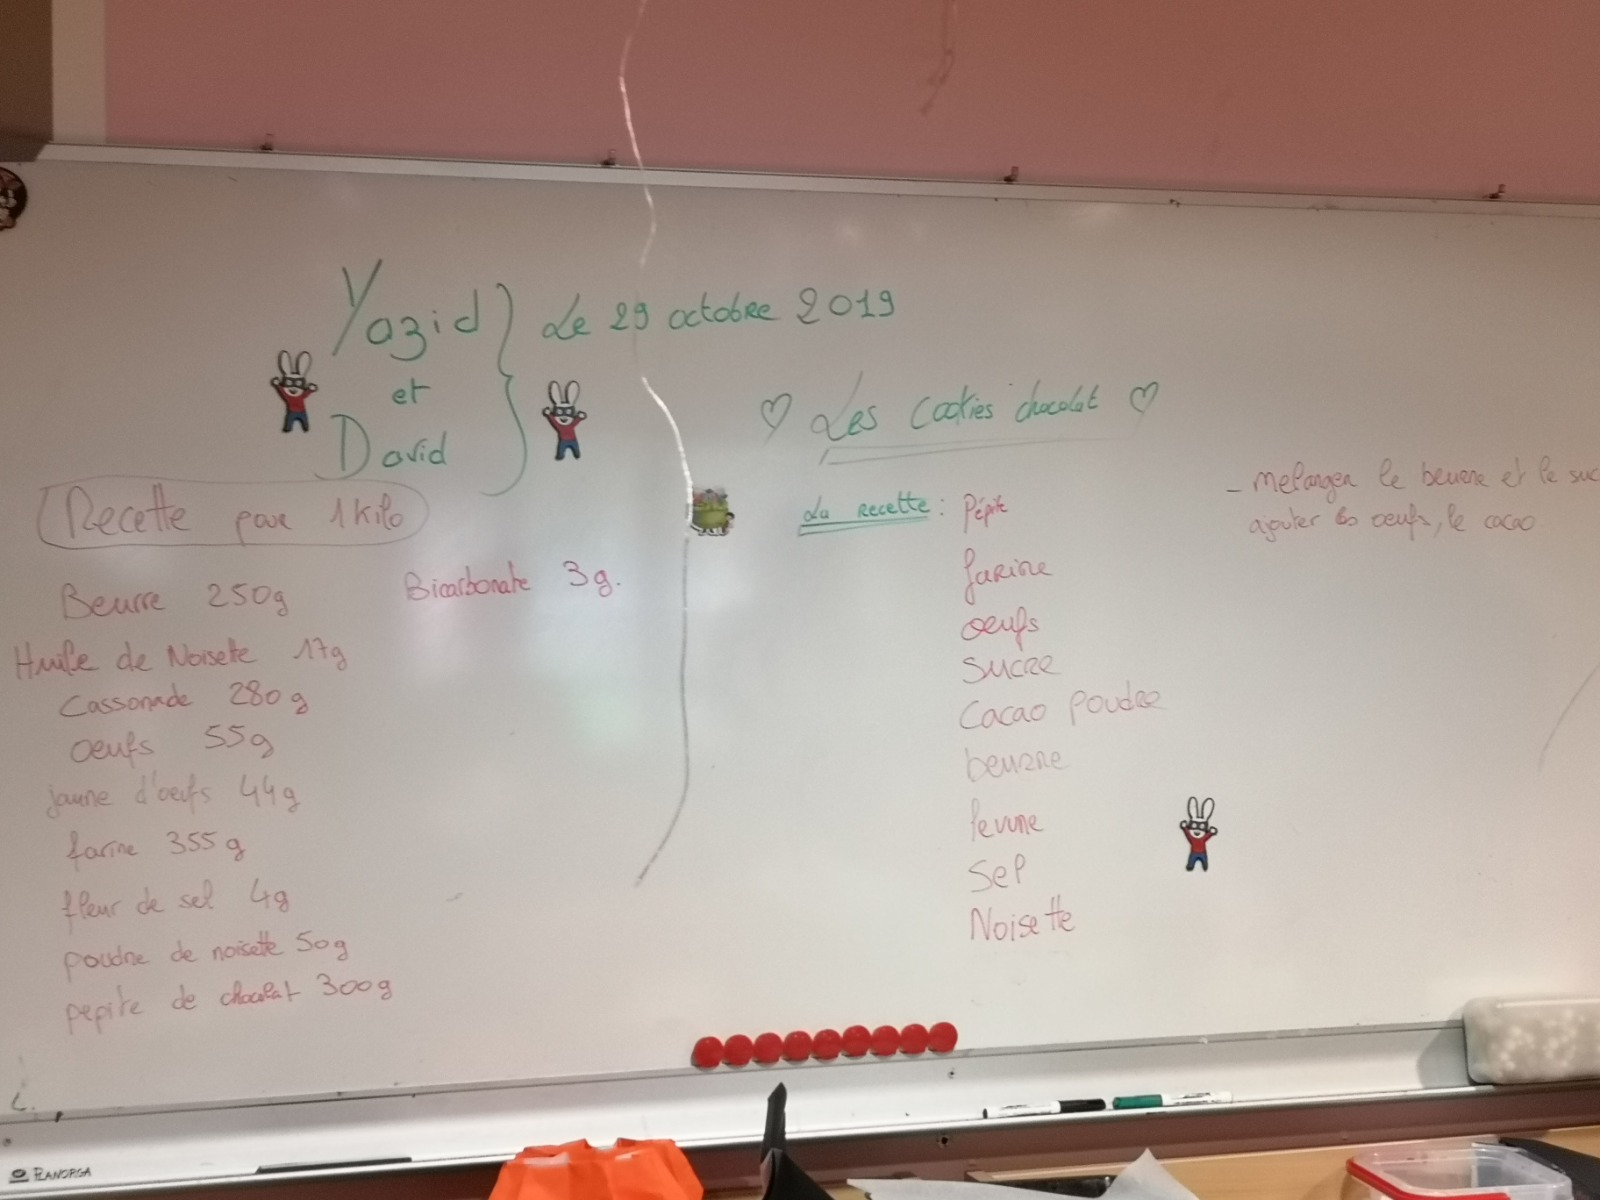 Yazid
et
David
Le 29 octobre 2019
♡ Les Cookies chocolat ♡
Recette pour 1 Kilo
Beurre 250g
Huile de Noisette 17g
Cassonade 280g
oeufs 55g
jaune d'oeufs 44g
farine 355g
fleur de sel 4g
poudre de noisette 50g
pepite de chocolat 300g
Bicarbonate 3g.
La recette : Pépite
farine
oeufs
sucre
Cacao poudre
beurre
levure
Sel
Noisette
- melanger le beurre et le suc
ajouter les oeufs, le cacao
PLANORGA